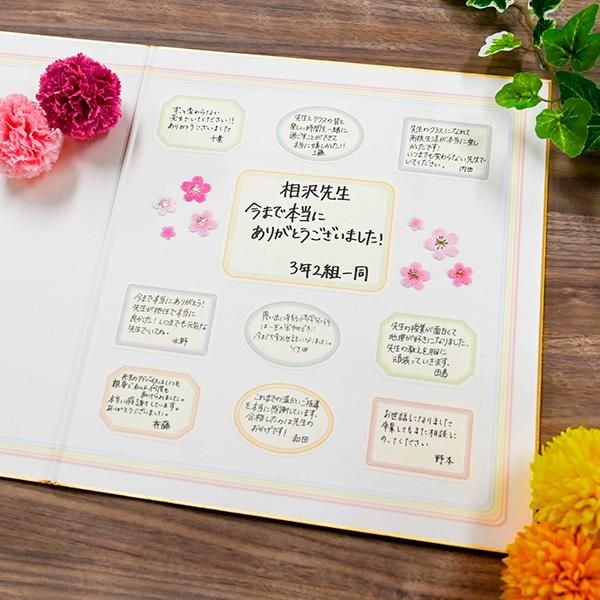 ずっと変わらない
先生でいてください!!
ありがとうございました
千葉
先生とクラスの皆と
楽しい時間を一緒に
過ごすことができて
本当に嬉しかった!!
工藤
先生のクラスになれて
高校生活が本当に楽し
かったです!
いつまでも変わらない先生で
いてください。
内田
相沢先生
今まで本当に
ありがとうございました!
3年2組一同
今まで本当にありがとう!
先生が担任で本当に
良かった!いつまでも元気な
先生でいてね。
水野
思い出に残る
は一生の宝物です!!
今までお世話になりました。
竹田
先生の授業が面白くて
地理が好きになりました。
先生の教えを胸に
頑張っていきます。
田島
先生のアドバイスはいつも
親身で私は何度も
助けられました。
本当に感謝しています。
ありがとうございました。
斉藤
これまでの温かいご指導
を本当に感謝しています。
合格したのは先生の
おかげです!
和田
お世話になりました
卒業してもまた相談に
のってください
野本